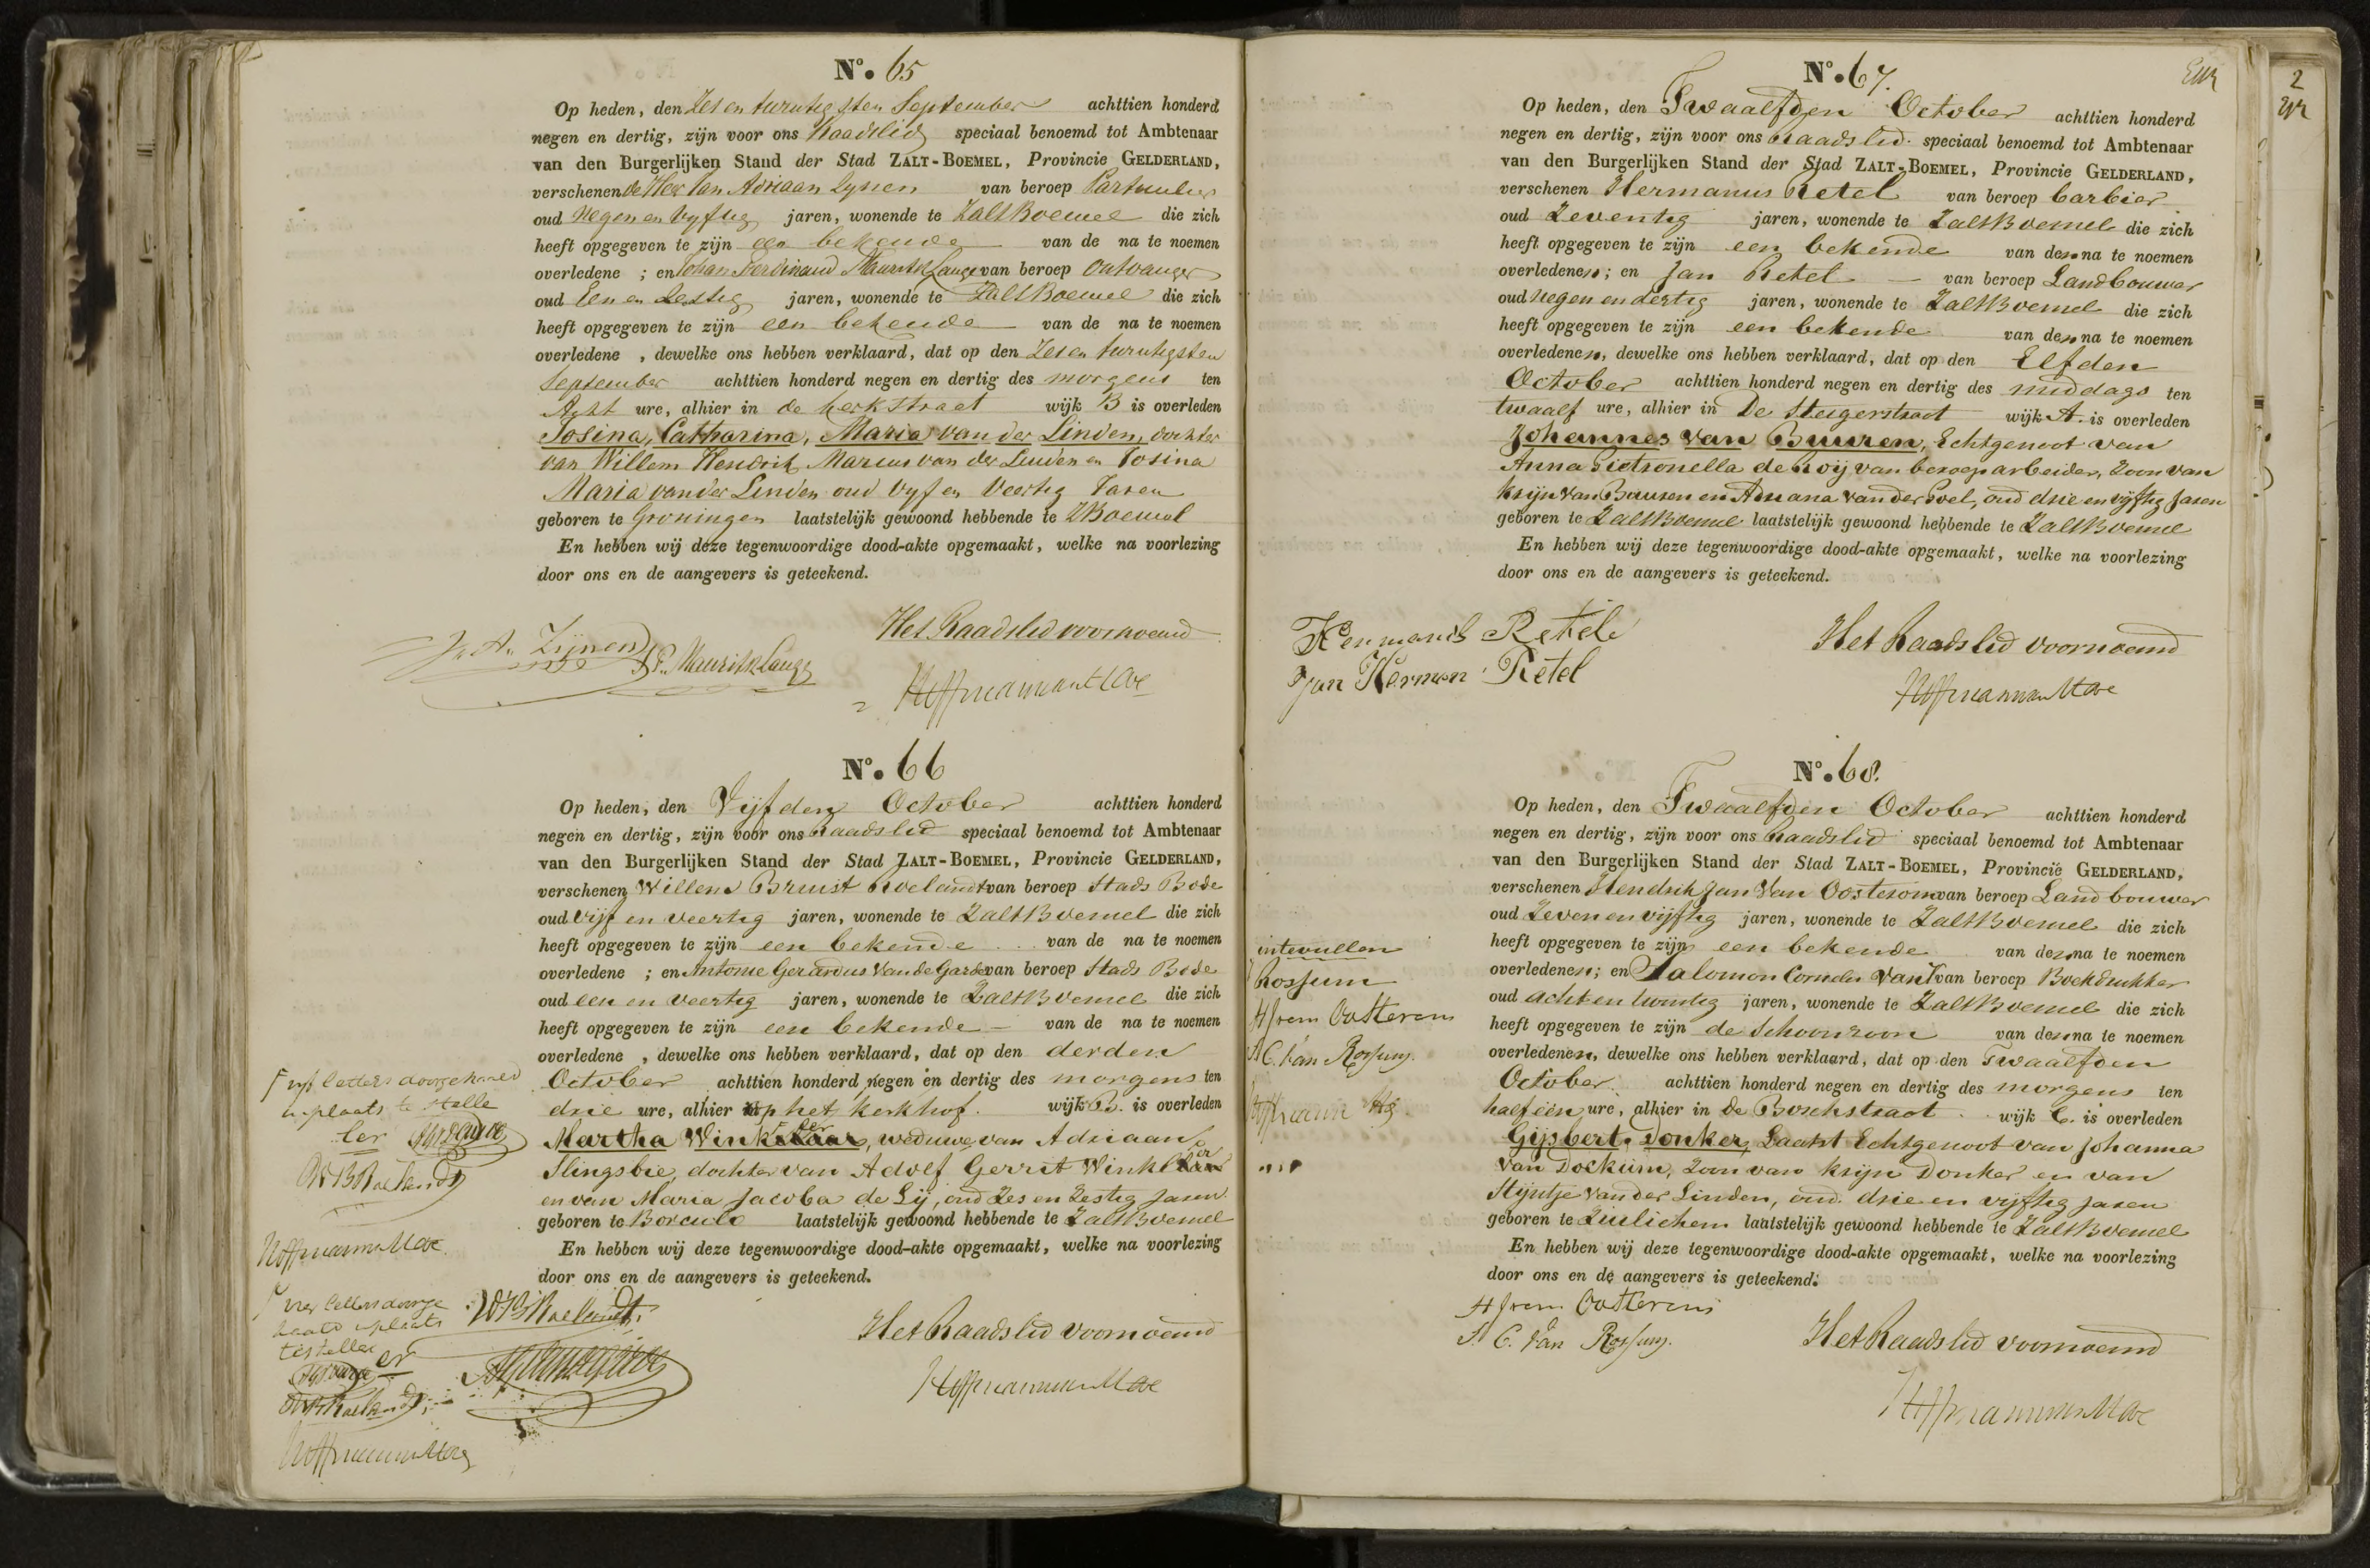 Nº. 65
Op heden, den Zes en twintigsten September achttien honderd
negen en dertig, zijn voor ons Raadslid speciaal benoemd tot Ambtenaar
van den Burgerlijken Stand der Stad ZALT-BOEMEL, Provincie GELDERLAND,
verschenen de Heer Jan Adriaan Zynen van beroep Particulier
oud Negen en Vyftig jaren, wonende te ZaltBoemel die zich
heeft opgegeven te zijn een bekende van de na te noemen
overledene ; en Johan Ferdinand Mauritz Lange van beroep Ontvanger
oud Een en Zestig jaren, wonende te ZaltBoemel die zich
heeft opgegeven te zijn een bekende van de na te noemen
overledene , dewelke ons hebben verklaard, dat op den Zes en twintigsten
September achttien honderd negen en dertig des morgens ten
Acht ure, alhier in de kerkstraat wijk B is overleden
Josina, Catharina, Maria van der Linden, dochter
van Willem Hendrik Marius van der Linden en Josina
Maria van der Linden oud Vyf en Veertig Jaren
geboren te Groningen laatstelijk gewoond hebbende te ZBoemel
En hebben wij deze tegenwoordige dood-akte opgemaakt, welke na voorlezing
door ons en de aangevers is geteekend.
Het Raadslid voornoemd
J. A. Zijnen
J. F. Mauritz Lange
Nº. 66
Op heden, den Vijfden October achttien honderd
negen en dertig, zijn voor ons Raadslid speciaal benoemd tot Ambtenaar
van den Burgerlijken Stand der Stad ZALT-BOEMEL, Provincie GELDERLAND,
verschenen Willem Bruist Roelandt van beroep Stads Bode
oud Vijf en Veertig jaren, wonende te ZaltBoemel die zich
heeft opgegeven te zijn een bekende van de na te noemen
overledene ; en Antonie Gerardus van de Garde van beroep Stads Bode
oud een en veertig jaren, wonende te ZaltBoemel die zich
heeft opgegeven te zijn een bekende van de na te noemen
overledene , dewelke ons hebben verklaard, dat op den derden
October achttien honderd negen en dertig des morgens ten
drie ure, alhier op het kerkhof. wijk B. is overleden
Martha Winkler, weduwe van Adriaan
Slingsbie, dochter van Adolf Gerrit Winkler
en van Maria Jacoba de Lij, oud Zes en Zestig Jaren
geboren te Borculo laatstelijk gewoond hebbende te ZaltBoemel
En hebben wij deze tegenwoordige dood-akte opgemaakt, welke na voorlezing
door ons en de aangevers is geteekend.
vyf letters doorgehaald
in plaats te stelle
ler
WB Roelandt
vier letters doorge
haald in plaats
te stellen
er
WB Roelandt
WB Roelandt
Het Raadslid voornoemd
Nº. 67.
Op heden, den Twaalfden October achttien honderd
negen en dertig, zijn voor ons Raadslid speciaal benoemd tot Ambtenaar
van den Burgerlijken Stand der Stad ZALT-BOEMEL, Provincie GELDERLAND,
verschenen Hermanus Retel van beroep barbier
oud Zeventig jaren, wonende te ZaltBoemel die zich
heeft opgegeven te zijn een bekende van den na te noemen
overledenen; en Jan Retel van beroep Landbouwer
oud negen en dertig jaren, wonende te ZaltBoemel die zich
heeft opgegeven te zijn een bekende van den na te noemen
overledenen, dewelke ons hebben verklaard, dat op den Elfden
October achttien honderd negen en dertig des middags ten
twaalf ure, alhier in De Steigerstraat wijk A. is overleden
Johannes van Buuren, Echtgenoot van
Anna Pietronella de Roij van beroep arbeider, Zoon van
Krijn van Buuren en Adriana van der Poel, oud drie en vijftig Jaren
geboren te ZaltBoemel laatstelijk gewoond hebbende te ZaltBoemel
En hebben wij deze tegenwoordige dood-akte opgemaakt, welke na voorlezing
door ons en de aangevers is geteekend.
Hermanis Retel
Jan Hermen Retel
Het Raadslid voornoemd
Nº. 68.
Op heden, den Twaalfden October achttien honderd
negen en dertig, zijn voor ons Raadslid speciaal benoemd tot Ambtenaar
van den Burgerlijken Stand der Stad ZALT-BOEMEL, Provincie GELDERLAND,
verschenen Hendrik Jan van Oosterom van beroep Landbouwer
oud Zeven en vijftig jaren, wonende te ZaltBoemel die zich
heeft opgegeven te zijn een bekende van den na te noemen
overledenen; en Salomon Cornelis van van beroep Boekdrukker
oud acht en twintig jaren, wonende te ZaltBoemel die zich
heeft opgegeven te zijn de Schoonzoon van den na te noemen
overledenen, dewelke ons hebben verklaard, dat op den Twaalfden
October achttien honderd negen en dertig des morgens ten
half één ure, alhier in de Boschstraat wijk C. is overleden
Gijsbert Donker, Laatst Echtgenoot van Johanna
van Dockum, Zoon van Krijn Donker en van
Stijntje van der Linden, oud drie en vijftig Jaren
geboren te Zuilichem laatstelijk gewoond hebbende te ZaltBoemel
En hebben wij deze tegenwoordige dood-akte opgemaakt, welke na voorlezing
door ons en de aangevers is geteekend.
intevullen
Rossum
S C. van Rossum.
S C. van Rossum.
Het Raadslid voornoemd
2